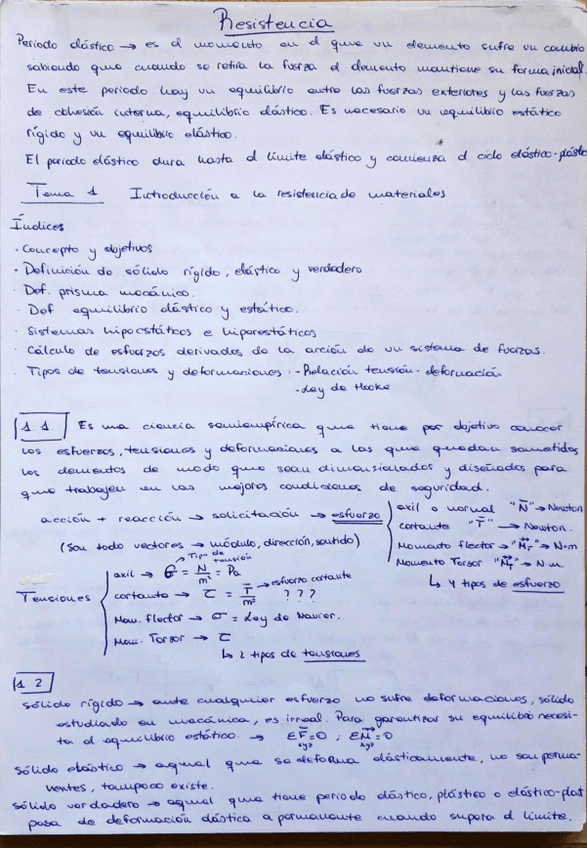 Resistencia
Período elástico → es el momento en el que un elemento sufre un cambio
sabiendo que cuando se retira la fuerza el elemento mantiene su forma inicial.
En este período hay un equilibrio entre las fuerzas exteriores y las fuerzas
de cohesión interna, equilibrio elástico. Es necesario un equilibrio estático
rígido y un equilibrio elástico.
El período elástico dura hasta el límite elástico y comienza el ciclo elástico-plást
Tema 1 Introducción a la resistencia de materiales
Índices
· Concepto y objetivos
· Definición de sólido rígido, elástico y verdadero
· Def. prisma mecánico.
· Def equilibrio elástico y estático.
· Sistemas hipoestáticos e hiperestáticos
· Cálculo de esfuerzos derivados de la acción de un sistema de fuerzas.
· Tipos de tensiones y deformaciones: - Relación tensión-deformación
- Ley de Hooke
1.1 Es una ciencia semiempírica que tiene por objetivo conocer
los esfuerzos, tensiones y deformaciones a las que quedan sometidos
los elementos de modo que sean dimensionados y diseñados para
que trabajen en las mejores condiciones de seguridad.
acción + reacción → solicitación → esfuerzo
axil o normal "N̄" → Newton
cortante "T̄" → Newton.
Momento flector → "M⃗F" → N·m
Momento Torsor "M⃗T" → N·m.
↳ 4 tipos de esfuerzo
(Son todo vectores → módulo, dirección, sentido)
Tensiones
Tipo de tensión
axil → σ = N/m² = Pa
cortante → τ = T̄/m² → esfuerzo cortante ? ? ?
Mom. flector → σ = Ley de Navier.
Mom. Torsor → τ
↳ 2 tipos de tensiones
1.2
Sólido rígido → ante cualquier esfuerzo no sufre deformaciones, sólido
estudiado en mecánica, es irreal. Para garantizar su equilibrio necesi-
ta el equilibrio estático. → ΣF̄=0 ; ΣM⃗=0
xyz xyz
Sólido elástico → aquel que se deforma elásticamente, no son perma-
nentes, tampoco existe.
sólido verdadero → aquel que tiene período elástico, plástico o elástico-plast
pasa de deformación elástica a permanente cuando supera el límite.